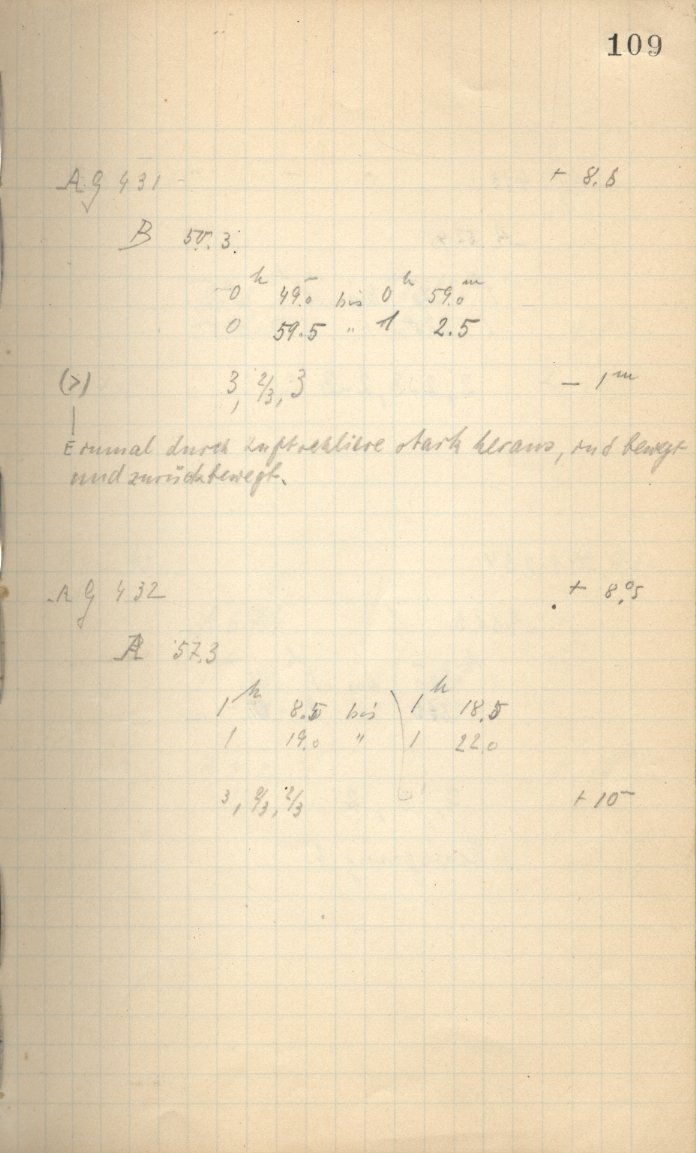 109
AG 431 + 8.6
B 57.3
0h 49.0 bis 0h 59.0m
0 59.5 " 1 2.5
(>) 3, 2/3, 3 — 1m
Einmal durch stark heraus, und bewegt
und zurückbewegt.
AG 432 + 8.05
A 57.3
1h 8.5 bis 1h 18.5
1 19.0 " 1 22.0
3, 2/3, 2/3 + 10